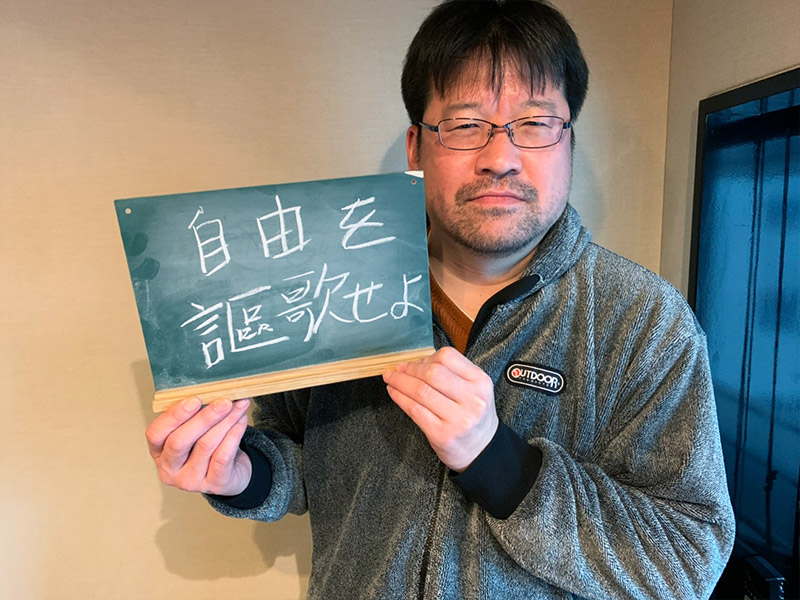 自由を
謳歌せよ
OUTDOOR